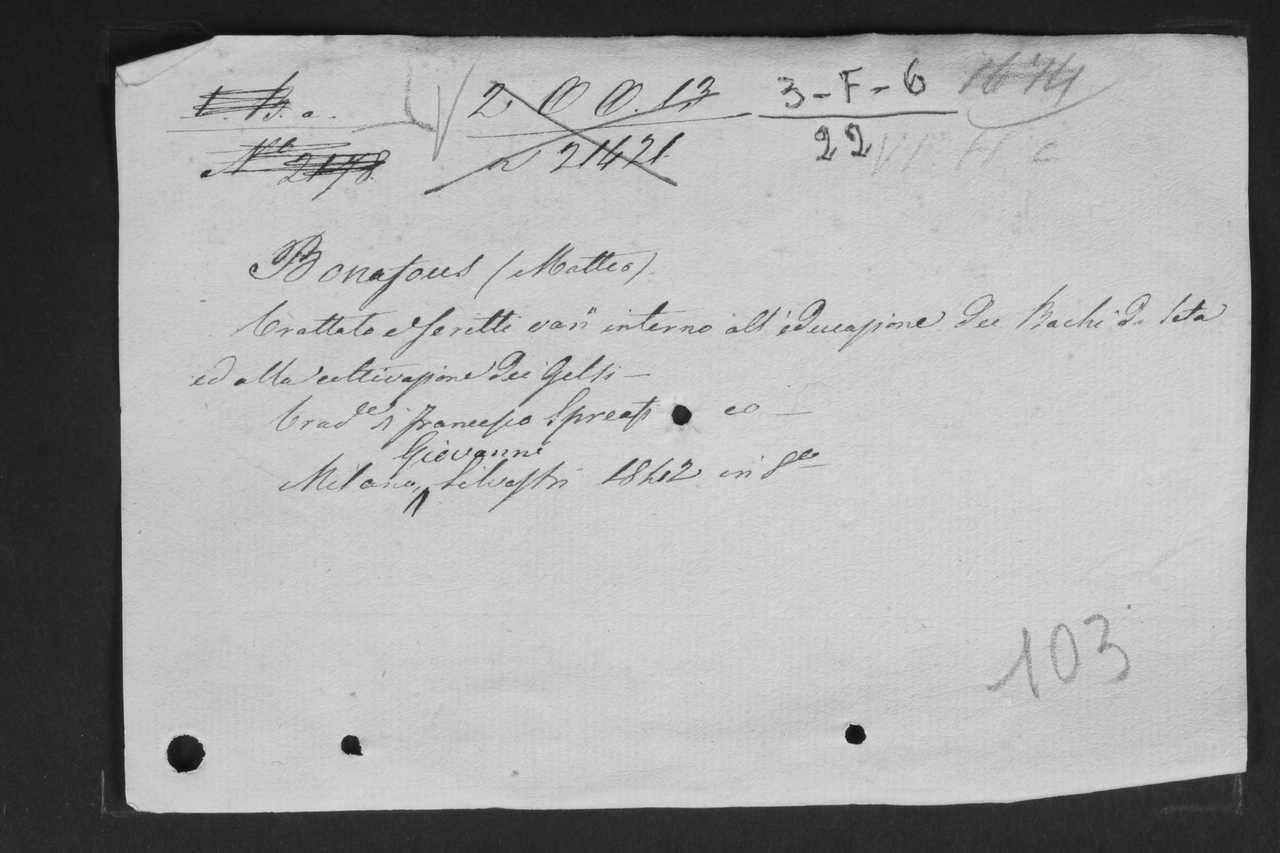 2 O O. 13
3-F-6
No 2178.
21421.
22
Bonafous (Matteo).
Trattato e Scritti varii interno all'educazione dei Bachi da Seta
ed alla coltivazione dei Gelsi –
Trad.e di Francesco Spreafi co –
Giovanni
Milano, Silvestri 1842 in 8o
103